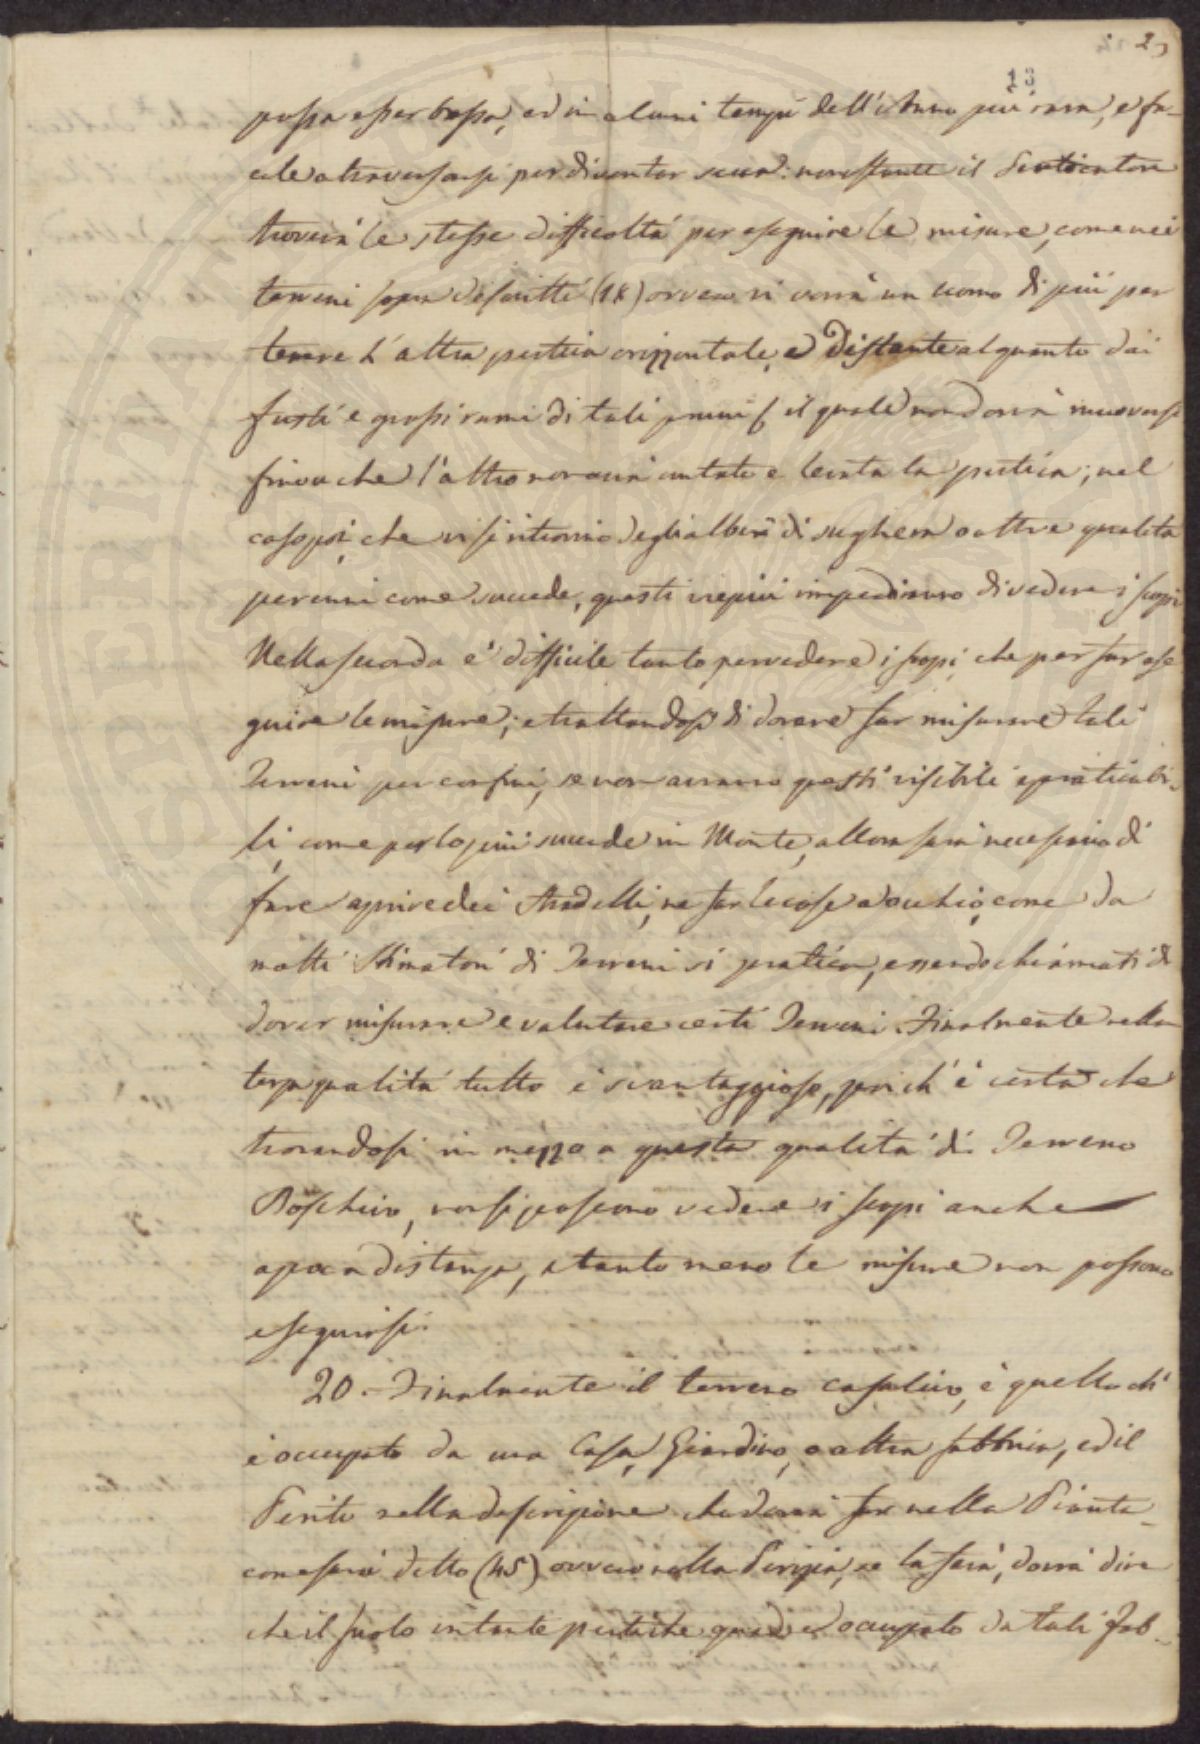 23
13
possa esser bassa, ed in alcuni tempi dell'Anno più rara, e fa-
cile a traversarsi per diventar secca: nonostante il
troverà le stesse difficoltà per eseguire le misure, come nei
terreni sopra descritti (18) ovvero vi vorrà un uomo di più per
tenere l'altra pertica orizzontale, e distante alquanto dai
fusti e grossi rami di tali pruni, il quale non dovrà muoversi
finoache l'altro non avrà contato e levata la pertica; nel
caso poi, che vi si ritrovino degli alberi di sughera o altre qualità
perenni come succede, questi viepiù impediranno di vedere i scopi
Nella seconda è difficile tanto per vedere i scopi, che per far ese
guire le misure; e trattandosi di dovere far misurare tali
Terreni per confini, se non avranno questi visibili e praticabi-
li, come per lo più succede in Monte, allora sarà necessario di
fare aprire dei Stradelli, ne far le cose a occhio, come da
molti Stimatori di Terreni si pratica, essendo chiamati di
dover misurare e valutare certi Terreni. Finalmente nella
terza qualità tutto è svantaggioso, poich' è certo che
trovandosi in mezzo a questa qualità di Terreno
Boschivo, non si possono vedere i scopi anche
a poca distanza, e tanto meno le misure non possono
eseguirsi.
20. Finalmente il terreno casalivo, è quello ch'
è occupato da una Casa, Giardino, o altra fabbrica, ed il
Perito nella descrizione che dovrà far nella Pianta
come sarà detto (45) ovvero nella Perizia, se la farà, dovrà dire
che il suolo in tante pertiche quadre è occupato da tali Fab-